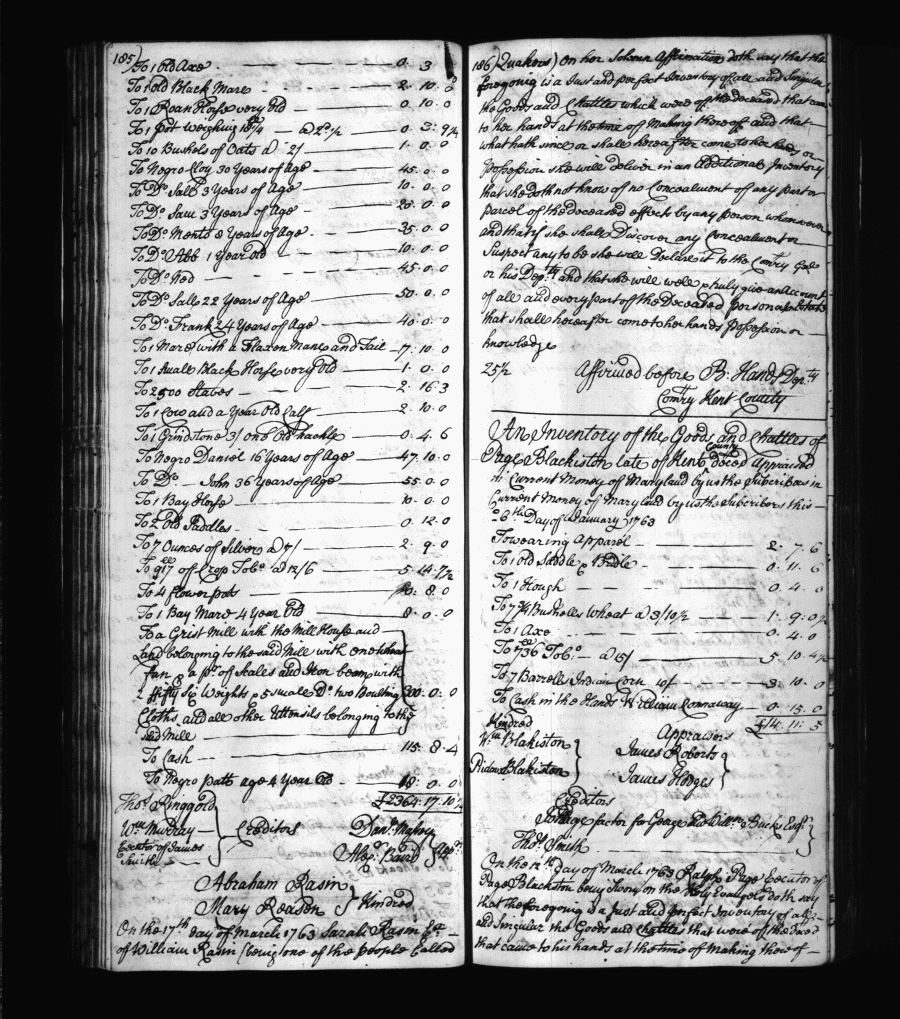 185)
To 1 Old Axe - 0. 3
To 1 Old Black Mare - 2. 10. 0
To 1 Roan Horse very Old - 0. 10. 0
To 1 Pot weighing 18¼ - a 2½ - 0. 3. 9¼
To 10 Bushels of Oats a 2/ - 1. 0. 0
To Negro Cloy 30 Years of Age - 45. 0. 0
To Do. Sall 3 Years of Age - 10. 0. 0
To Do. Sam 3 Years of Age - 20. 0. 0
To Do. 8 Years of Age - 35. 0. 0
To Do. Abb 1 Year old - 10. 0. 0
To Do. Ned - 45. 0. 0
To Do. Sall 22 Years of Age - 50. 0. 0
To Do. Frank 24 Years of Age - 40. 0. 0
To 1 Mare with a Flaxen Mane and Tail - 7. 10. 0
To 1 Small Black Horse very Old - 1. 0. 0
To 2500 Staves - 2. 16. 3
To 1 Cow and a Year Old Calf - 2. 10. 0
To 1 Grindstone 3/ one Old hackle - 0. 4. 6
To Negro Daniel 16 Years of Age - 47. 10. 0
To Do. - John 36 Years of Age - 55. 0. 0
To 1 Bay Horse - 10. 0. 0
To 2 Old Saddles - 0. 12. 0
To 7 Ounces of Silver a 7/ - 2. 9. 0
To 917 of Crop Tobo. a 12/6 - 5. 14. 7½
To 4 flower pots - 0. 8. 0
To 1 Bay Mare 4 Year Old - 8. 0. 0
To a Grist Mill with the Mill House and
Land belonging to the said Mill with one wheat
fan & a pr. of Scales and Iron beam with
fifty Six Weights & 5 small Do. two Boulting 0. 0
Cloths, and all other Utensils belonging to the
Said Mill
To Cash - 115. 8. 4
To Negro path age 4 Year Old - 18. 0. 0
£2364. 17. 10
Thos. Ringgold
Wm. Murray
Executor of James
Smith
Creditors
Danl.
Alexr. Baird
Abraham Rasin
Mary Reason
Kindred
On the 17th day of March 1763 Sarah Rasin Ex.
of William Rasin (being one of the people Called
186) Quakers) On her Solemn Affirmation doth say that the
foregonig is a Just and perfect Inventory of all and Singular
the Goods and Chattles which were of the deceased that came
to her hands at the time of Making thereof and that
what hath since or shall hereafter come to her hands or
Possession she will deliver in an Additional Inventory
that she doth not know of no Concealment of any part or
parcel of the deceased effects by any person whomsoever
and that if she shall Discover any Concealment or
Suspect any to be she will Declare it to the Comry. Genl
or his Depty. and that she will well & truly give an Account
of all and every part of the Deceased personal estate
that shall hereafter come to her hands possession or
knowledge
25½ Affirmed before B. Hands Depty.
Comry Kent County
An Inventory of the Goods and Chattles of
Page Blackiston late of Kent County deced Appraised
in Current Money of Maryland by us the Subcribers in
Current Money of Maryland by us the Subcribers this
26th Day of January 1763
To wearing Apparel - 2. 7. 6
To 1 Old Saddle & Bridle - 0. 11. 6
To 1 Plough - 0. 4. 0
To 7¾ Bushells Wheat a 3/10½ - 1. 9. 0½
To 1 Axe - 0. 4. 0
To 736 Tobo. - a 15/ - 5. 10. 4½
To 7 Barrells Indian Corn 10/ - 3. 10. 0
To Cash in the Hands William Connaway - 0. 15. 0
£14. 11. 5
Kindred
Wm. Blakiston
Blakiston
Appraisers
James Roberts
James Hodges
Creditors
factor for George and Willm. Bucks Esqr.
Thos. Smith
On the 12th day of March 1763 Ralph Page Executor of
Page Blackston being Sworn on the Holy Evangels doth say
that the foregonig is a Just and perfect Inventory of all
and Singular the Goods and chattles that were of the deced
that came to his hands at the time of Making there of